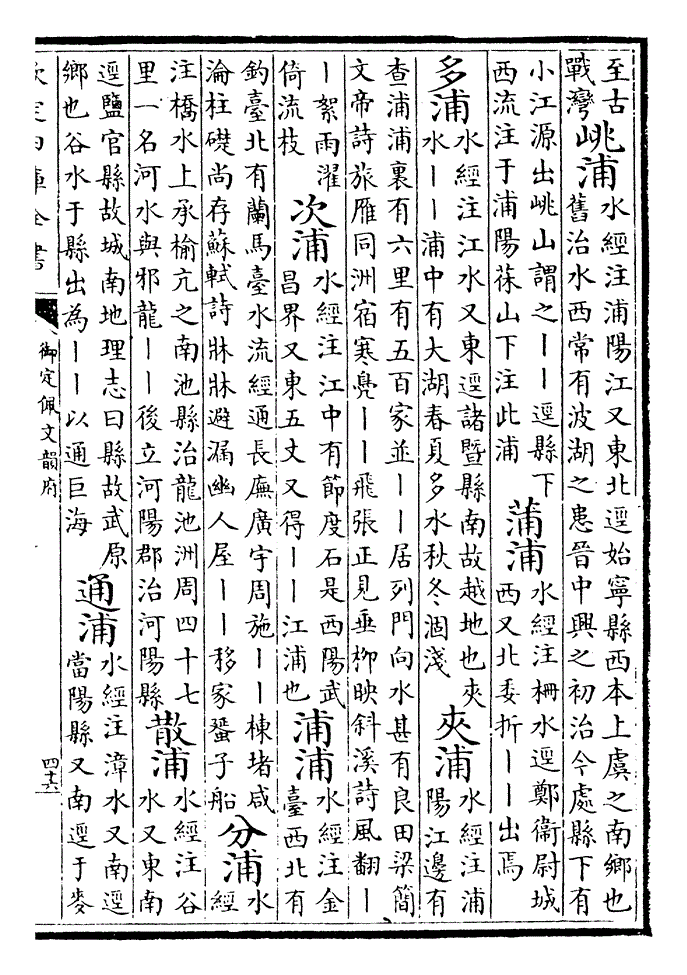 至古
戰灣
姚浦
水經注浦陽江又東北逕始寧縣西本上虞之南鄉也
舊治水西常有波湖之患晉中興之初治今處縣下有
小江源出姚山謂之——逕縣下
西流注于浦陽葆山下注此浦
蒲浦
水經注柵水逕鄭衛尉城
西又北委折——出焉
多浦
水經注江水又東逕諸暨縣南故越地也夾
水——浦中有大湖春夏多水秋冬涸淺
夾浦
水經注浦
陽江邊有
查浦浦裏有六里有五百家並——居列門向水甚有良田梁簡
文帝詩旅雁同洲宿寒鳧——飛張正見垂柳映斜溪詩風翻—
—絮雨濯
倚流枝
次浦
水經注江中有節度石是西陽武
昌界又東五丈又得——江浦也
浦浦
水經注金
臺西北有
釣臺北有蘭馬臺水流經通長廡廣宇周施——棟堵咸
淪柱礎尚存蘇軾詩牀牀避漏幽人屋——移家蜑子船
分浦
水
經
注橋水上承榆亢之南池縣治龍池洲周四十七
里一名河水與邪龍——後立河陽郡治河陽縣
散浦
水經注谷
水又東南
逕鹽官縣故城南地理志曰縣故武原
鄉也谷水于縣出為——以通巨海
通浦
水經注漳水又南逕
當陽縣又南逕于麥
欽定四庫全書
御定佩文韻府
四十六